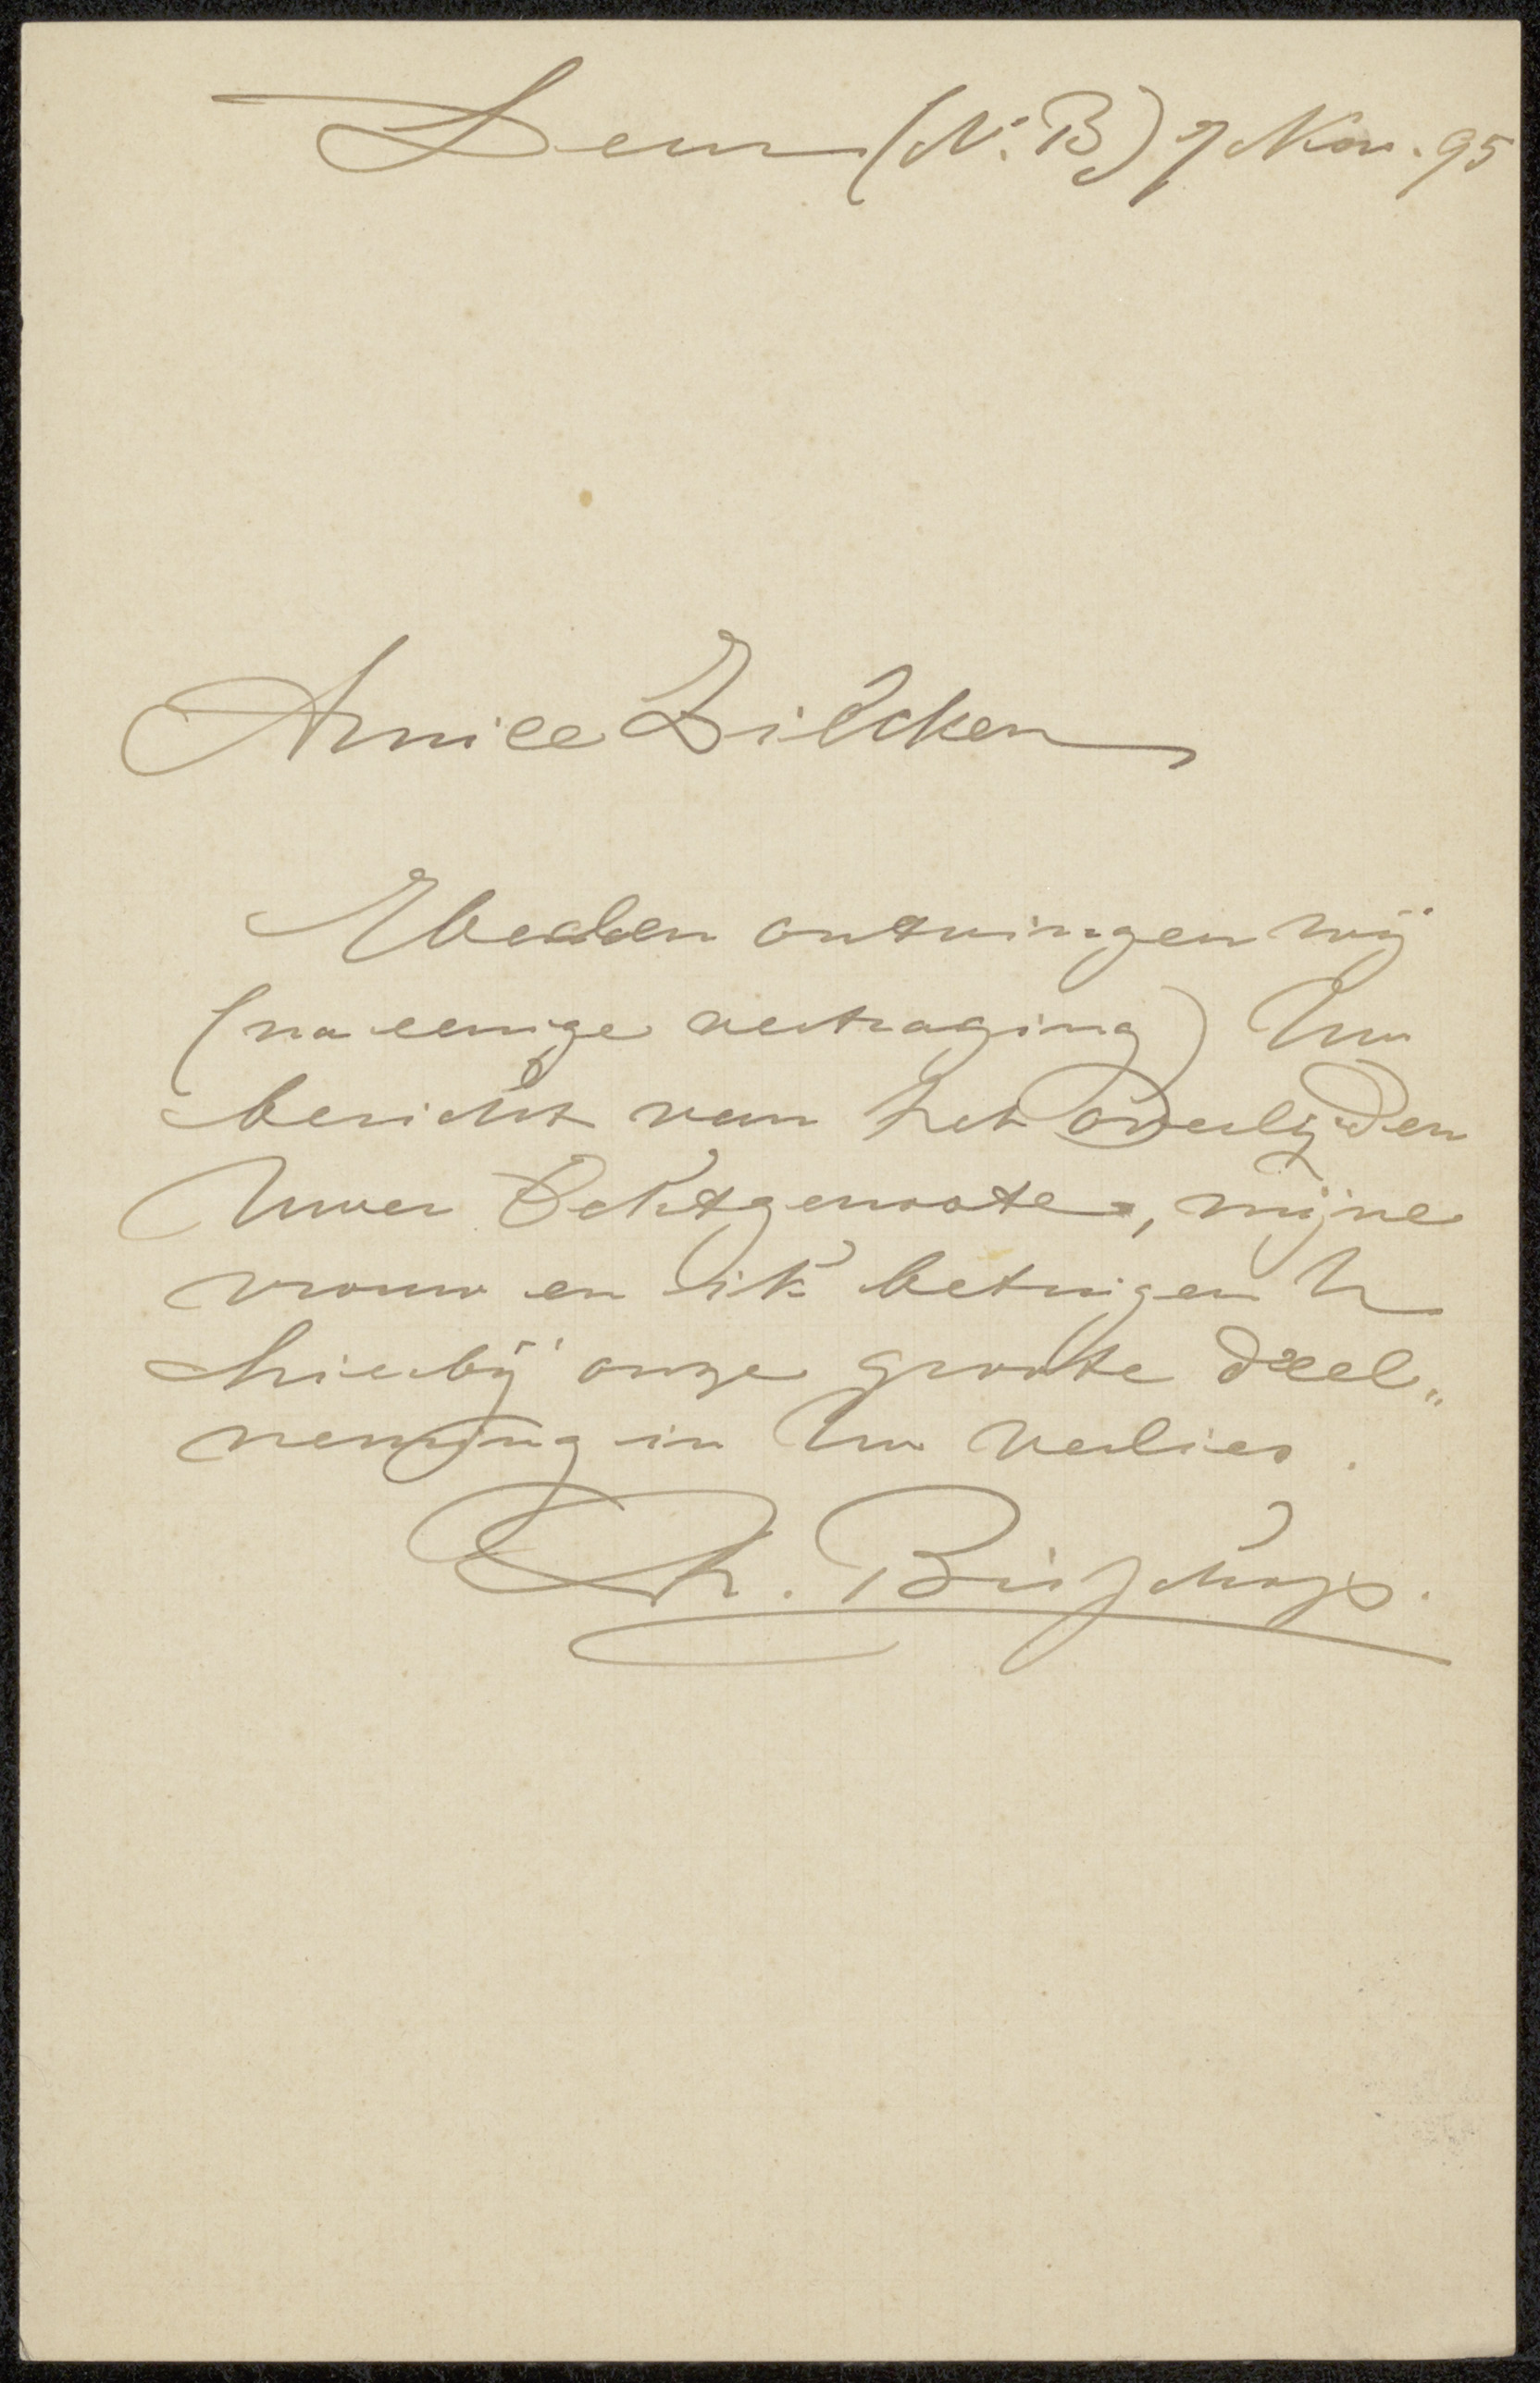 Leur (N. B) 7 Nov. 95
Amice Zilcken
Heden ontvingen wij
(na eenige vertraging) Uw
bericht van het overlijden
Uwer Echtgenoote, mijne
vrouw en ik betuigen U
hierbij onze groote deel„
neming in Uw verlies.
Ch. Bisschops.